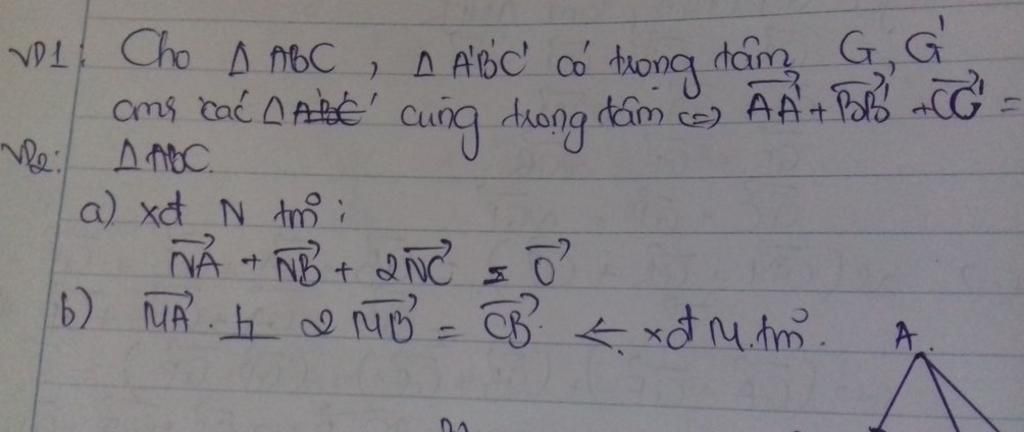 VD1: Cho Δ ABC, Δ A'B'C' có trọng tâm G, G'
cmr các Δ cùng trọng tâm <=> AA'→ + BB'→ + CC'→ =
VD2: Δ ABC.
a) xđ N tm°:
NA→ + NB→ + 2NC→ = 0→
b) MA→ + 2 MB→ = CB→. ← xđ M. tm°.
A.